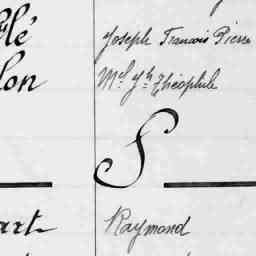 Joseph Francois Pierre
Mel Jh Théophile
lon
S
Raymond
art